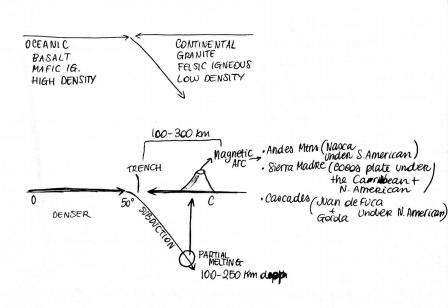 OCEANIC
BASALT
MAFIC IG.
HIGH DENSITY
CONTINENTAL
GRANITE
FELSIC IGNEOUS
LOW DENSITY
100-300 km
Magnetic
ARC
TRENCH
• Andes Mtns (Nasca
under S. American)
• Sierra Madre (Cocos plate under
the Caribbean +
N. American
• Cascades (Juan de Fuca
+
Gorda under N. American)
O
50°
C
DENSER
SUBDUCTION
PARTIAL
MELTING
100-250 Km